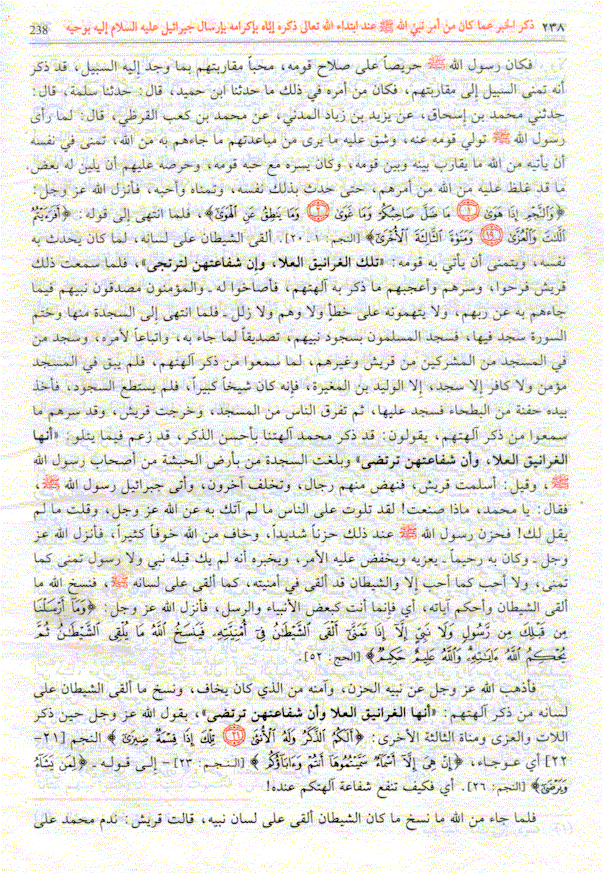 ٢٣٨ ذكر الخبر عما كان من أمر نبي الله ﷺ عند ابتداء الله تعالى ذكره إيّاه بإكرامه بإرسال جبرائيل عليه السلام إليه بوحيه 238
فكان رسول الله ﷺ حريصاً على صلاح قومه، محباً مقاربتهم بما وجد إليه السبيل، قد ذكر
أنه تمنى السبيل إلى مقاربتهم، فكان من أمره في ذلك ما حدثنا ابن حميد، قال: حدثنا سلمة، قال:
حدثني محمد بن إسحاق، عن يزيد بن زياد المدني، عن محمد بن كعب القرظي، قال: لما رأى
رسول الله ﷺ تولي قومه عنه، وشق عليه ما يرى من مباعدتهم ما جاءهم به من الله، تمنى في نفسه
أن يأتيه من الله ما يقارب بينه وبين قومه، وكان يسره مع حبه قومه، وحرصه عليهم أن يلين له بعض
ما قد غلظ عليه من الله من أمرهم، حتى حدث بذلك نفسه، وتمناه وأحبه، فأنزل الله عز وجل:
﴿وَالنَّجْمِ إِذَا هَوَىٰ ١ مَا ضَلَّ صَاحِبُكُمْ وَمَا غَوَىٰ ٢ وَمَا يَنطِقُ عَنِ الْهَوَىٰ﴾، فلما انتهى إلى قوله: ﴿أَفَرَءَيْتُمُ
اللَّٰتَ وَالْعُزَّىٰ ١٩ وَمَنَوٰةَ الثَّالِثَةَ الْأُخْرَىٰ﴾ [النجم: ١ـ ٢٠]. ألقى الشيطان على لسانه، لما كان يحدث به
نفسه، ويتمنى أن يأتي به قومه: «تلك الغرانيق العلا، وإن شفاعتهن لترتجى»، فلما سمعت ذلك
قريش فرحوا، وسرهم وأعجبهم ما ذكر به آلهتهم، فأصاخوا له ـ والمؤمنون مصدقون نبيهم فيما
جاءهم به عن ربهم، ولا يتهمونه على خطأٍ ولا وهم ولا زلل ـ فلما انتهى إلى السجدة منها وختم
السورة سجد فيها، فسجد المسلمون بسجود نبيهم، تصديقاً لما جاء به، واتباعاً لأمره، وسجد من
في المسجد من المشركين من قريش وغيرهم، لما سمعوا من ذكر آلهتهم، فلم يبق في المسجد
مؤمن ولا كافر إلا سجد، إلا الوليد بن المغيرة، فإنه كان شيخاً كبيراً، فلم يستطع السجود، فأخذ
بيده حفنة من البطحاء فسجد عليها، ثم تفرق الناس من المسجد، وخرجت قريش، وقد سرهم ما
سمعوا من ذكر آلهتهم، يقولون: قد ذكر محمد آلهتنا بأحسن الذكر، قد زعم فيما يتلو: «أنها
الغرانيق العلا، وأن شفاعتهن ترتضى» وبلغت السجدة من بأرض الحبشة من أصحاب رسول الله
ﷺ، وقيل: أسلمت قريش، فنهض منهم رجال، وتخلف آخرون، وأتى جبرائيل رسول الله ﷺ،
فقال: يا محمد، ماذا صنعت! لقد تلوت على الناس ما لم آتك به عن الله عز وجل، وقلت ما لم
يقل لك! فحزن رسول الله ﷺ عند ذلك حزناً شديداً، وخاف من الله خوفاً كثيراً، فأنزل الله عز
وجل ـ وكان به رحيماً ـ يعزيه ويخفض عليه الأمر، ويخبره أنه لم يك قبله نبي ولا رسول تمنى كما
تمنى، ولا أحب كما أحب إلا والشيطان قد ألقى في أمنيته، كما ألقى على لسانه ﷺ، فنسخ الله ما
ألقى الشيطان وأحكم آياته، أي فإنما أنت كبعض الأنبياء والرسل، فأنزل الله عز وجل: ﴿وَمَآ أَرْسَلْنَا
مِن قَبْلِكَ مِن رَّسُولٍ وَلَا نَبِيٍّ إِلَّآ إِذَا تَمَنَّىٰٓ أَلْقَى الشَّيْطَٰنُ فِىٓ أُمْنِيَّتِهِۦ فَيَنسَخُ اللَّهُ مَا يُلْقِى الشَّيْطَٰنُ ثُمَّ
يُحْكِمُ اللَّهُ ءَايَٰتِهِۦ وَاللَّهُ عَلِيمٌ حَكِيمٌ﴾ [الحج: ٥٢].
فأذهب الله عز وجل عن نبيه الحزن، وآمنه من الذي كان يخاف، ونسخ ما ألقى الشيطان على
لسانه من ذكر آلهتهم: «أنها الغرانيق العلا وأن شفاعتهن ترتضى»، بقول الله عز وجل حين ذكر
اللات والعزى ومناة الثالثة الأخرى: ﴿أَلَكُمُ الذَّكَرُ وَلَهُ الْأُنثَىٰ ٢١ تِلْكَ إِذًا قِسْمَةٌ ضِيزَىٰٓ﴾ النجم [٢١ـ
٢٢] أي عوجاء، ﴿إِنْ هِىَ إِلَّآ أَسْمَآءٌ سَمَّيْتُمُوهَآ أَنتُمْ وَءَابَآؤُكُمْ﴾ [النجم: ٢٣] ـ إلى قوله ـ ﴿لِمَن يَشَآءُ
وَيَرْضَىٰٓ﴾ [النجم: ٢٦]. أي فكيف تنفع شفاعة آلهتكم عنده!
فلما جاء من الله ما نسخ ما كان الشيطان ألقى على لسان نبيه، قالت قريش: ندم محمد على